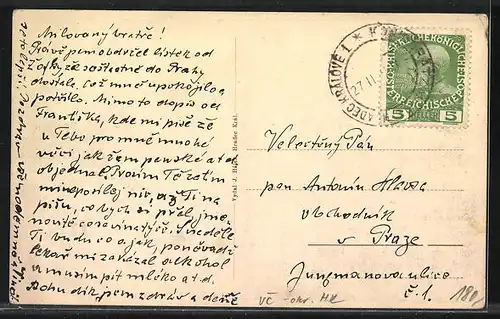 Milovaný bratře!
Právě jsem obdržel lístek od
Žofky že šťastně do Prahy
dostala. Což mně upokojilo a
potěšilo. Mimo to dopis od
Františka, kde mi píše že
u Tebe pro mně mnohé
věci jak žempenské a t d
objednal Prosím Tě zatím
mi neposílej nic, až Ti na
píšu, co bych si přál, jme-
novitě co se vína týče. Sice dále
Ti budu co a jak, poněvadž
lékař mi zakázal alkohol
a musím pít mléko a t. d.
Bohu dík jsem zdráv a denně
KÖNIGGRÄTZ 1 * HRADEC KRÁLOVÉ 1 *
27 II
KAISERLICHEKÖNIGLICHE
ÖSTERREICHISCHE POST
5 HELLER 5
Vydal J. Hradec Král.
Velectěný Pán
pan Antonín Hlava
obchodník
v Praze
Jungmanova ulice
č. 1.
VČ - okr. HK
180,-